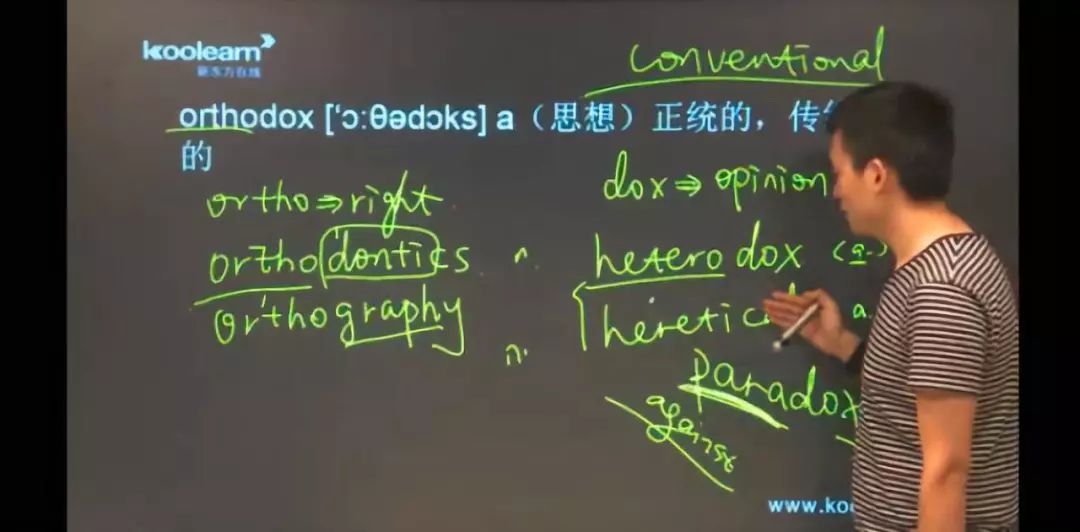 koolearn
新东方在线
conventional
orthodox ['ɔ:θədɔks] a（思想）正统的，传
的
ortho⇒right
dox⇒opinion
orthodontics n.
heterodox (a.)
orthography n.
heretic a.
paradox
against
www.koo